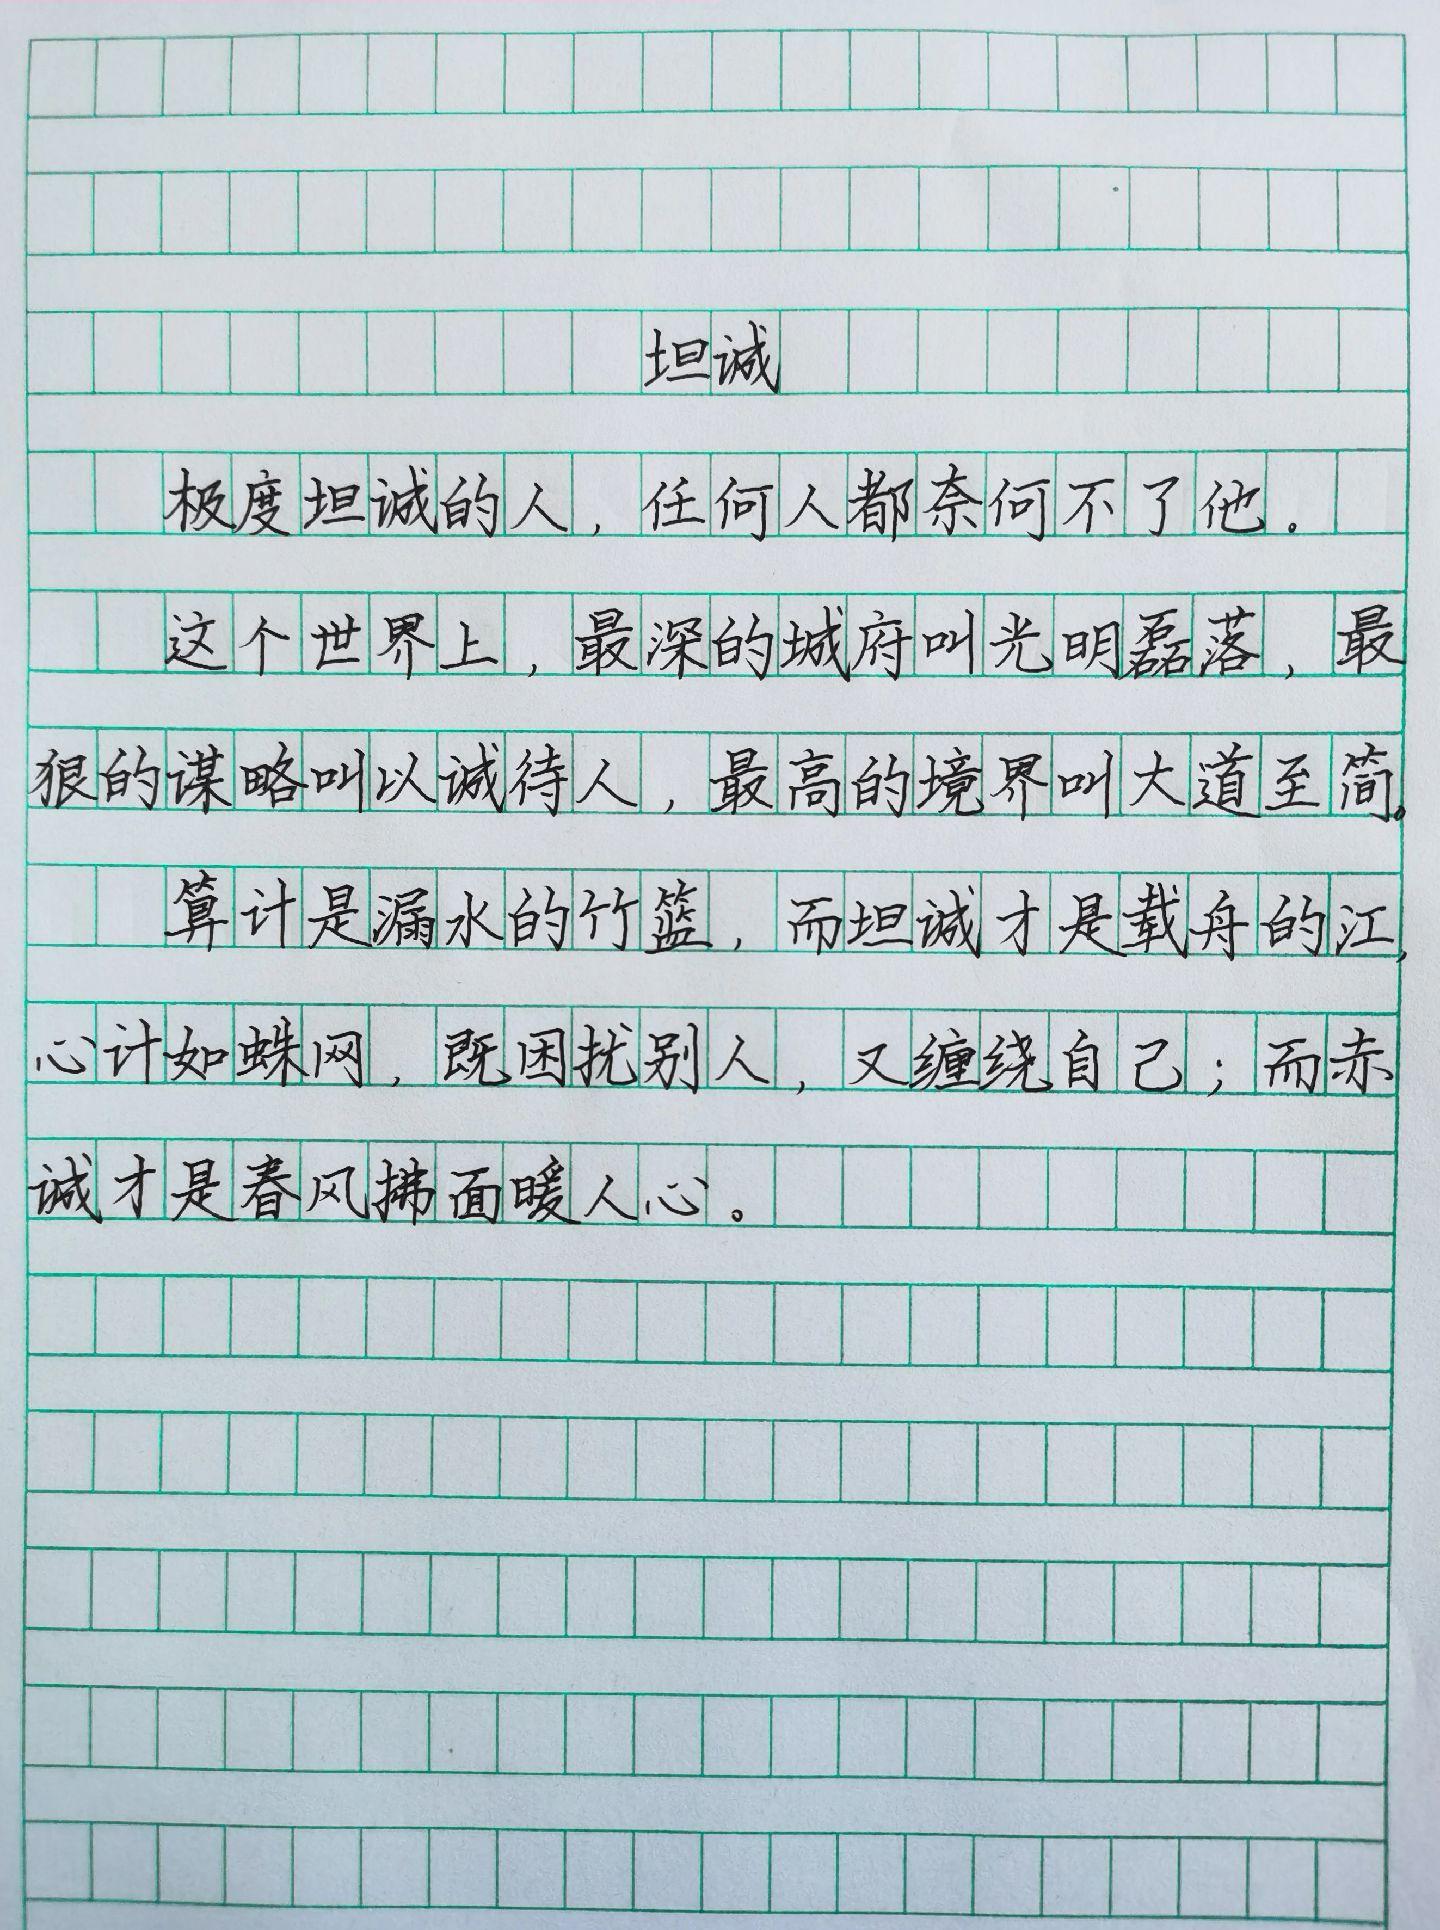 坦诚
极度坦诚的人，任何人都奈何不了他。
这个世界上，最深的城府叫光明磊落，最
狠的谋略叫以诚待人，最高的境界叫大道至简。
算计是漏水的竹篮，而坦诚才是载舟的江，
心计如蛛网，既困扰别人，又缠绕自己；而赤
诚才是春风拂面暖人心。